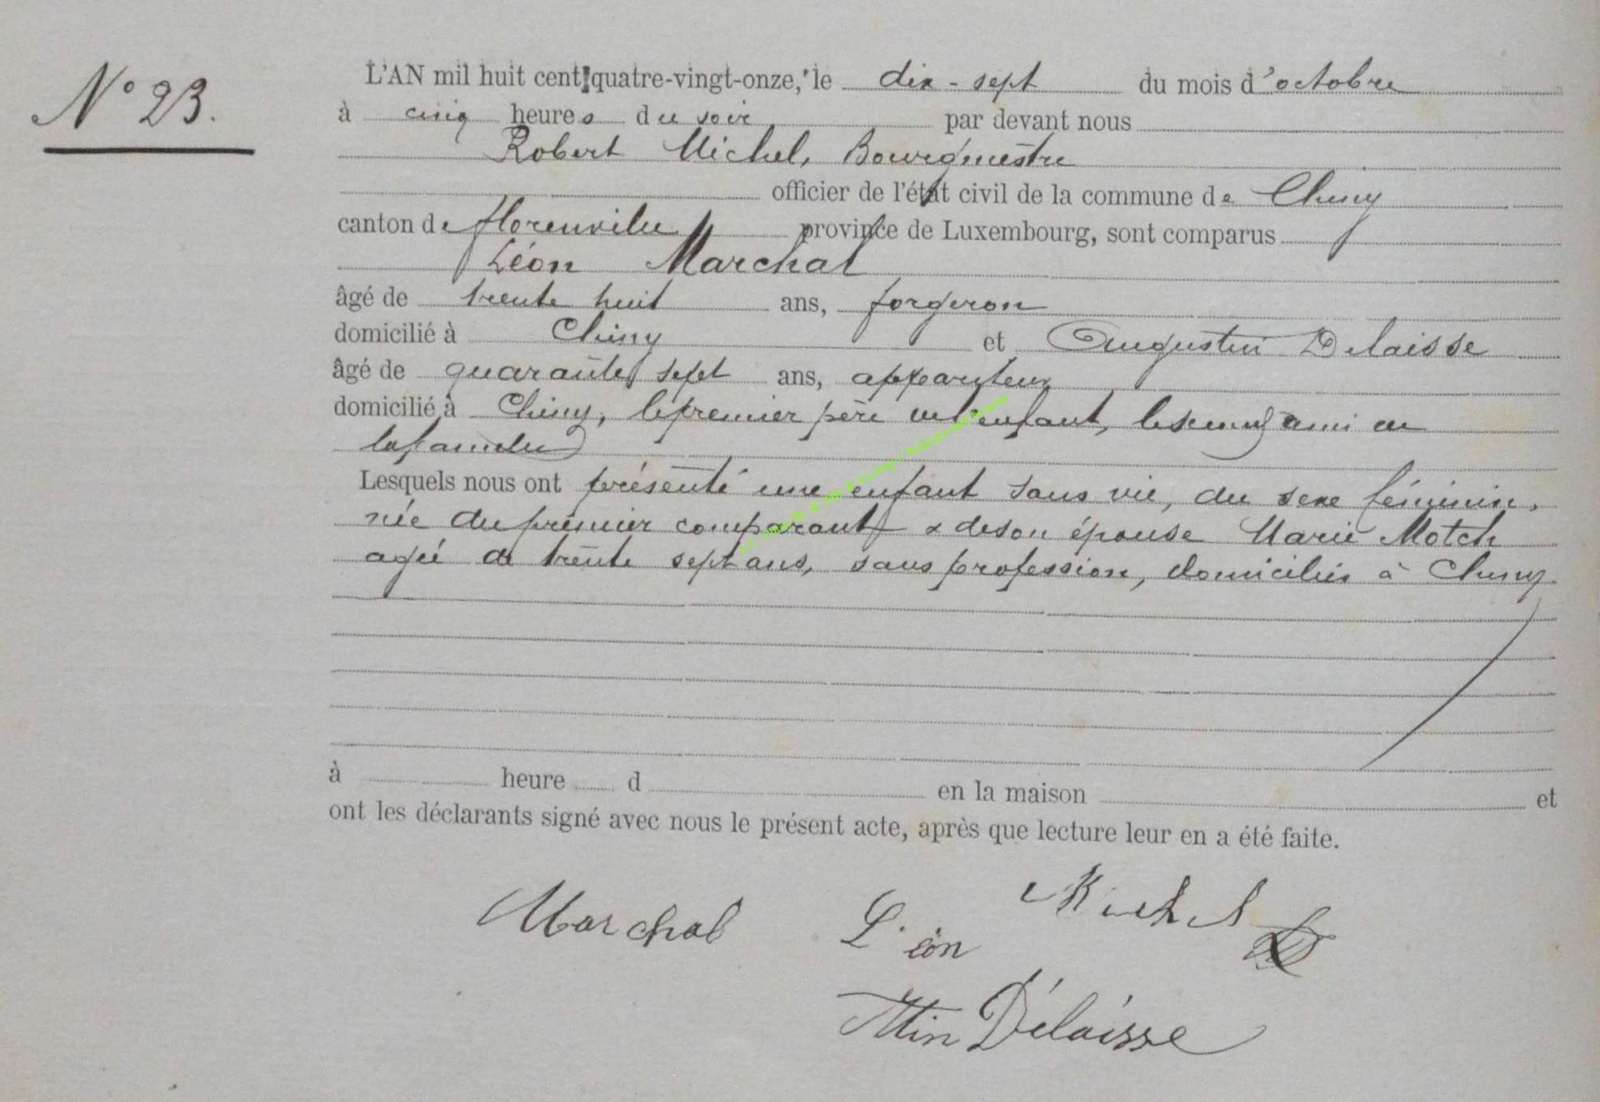 N° 23.
L'AN mil huit cent quatre-vingt-onze, le dix-sept du mois d'octobre
à cinq heures du soir par devant nous
Robert Michel, Bourgmestre
officier de l'état civil de la commune de Chiny
canton de florenville province de Luxembourg, sont comparus
Léon Marchal
âgé de trente huit ans, forgeron
domicilié à Chiny et Augustin Delaisse
âgé de quarante sept ans, appariteur
domicilié à Chiny, le premier père de l'enfant, le second ami de
la famille
Lesquels nous ont présenté une enfant sans vie, du sexe féminin,
née du premier comparant & de son épouse Marie Motch
agée de trente sept ans, sans profession, domiciliés à Chiny
à heure d en la maison et
ont les déclarants signé avec nous le présent acte, après que lecture leur en a été faite.
Marchal Léon Michel
Delaisse